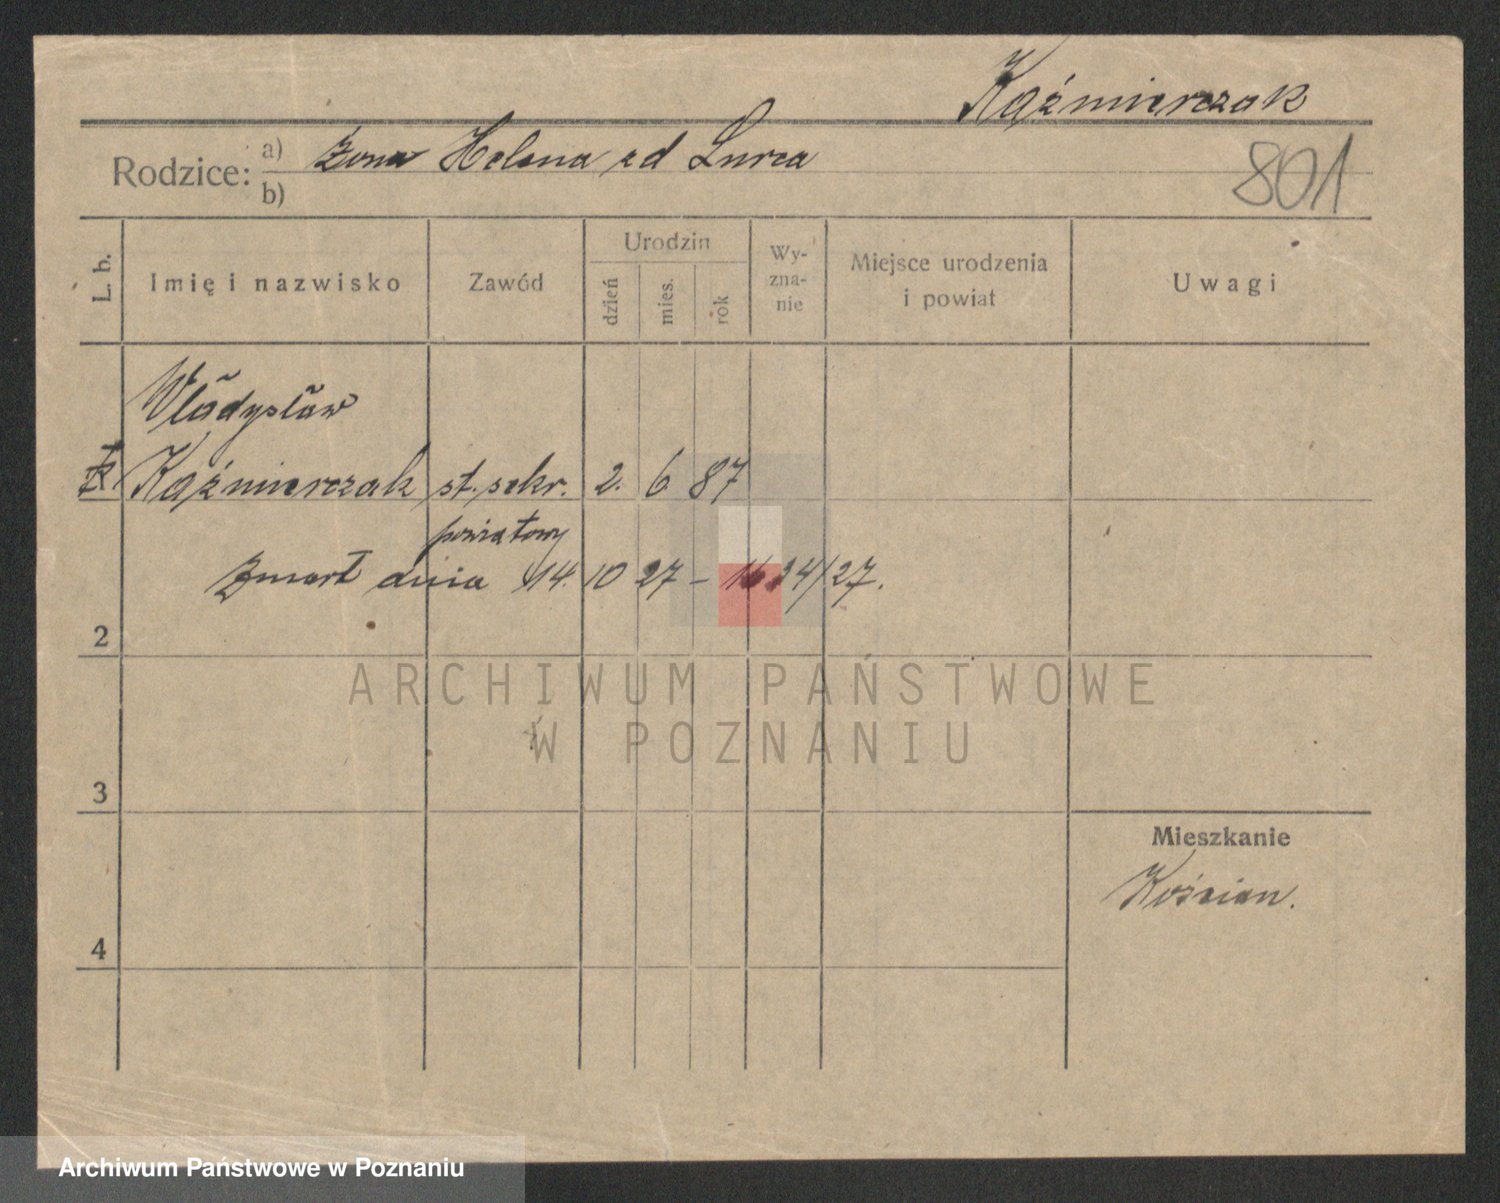 Kaźmierczak
Rodzice: a) żona Helena
b)
801
L. b.
Imię i nazwisko
Zawód
Urodzin
dzień
mies.
rok
Wy-
zna-
nie
Miejsce urodzenia
i powiat
Uwagi
Władysław
Kaźmierczak st. sekr. 2. 6 87
powiatowy
Zmarł dnia 14. 10 27 –
2
3
4
Mieszkanie
Kościan.
ARCHIWUM PAŃSTWOWE
W POZNANIU
Archiwum Państwowe w Poznaniu